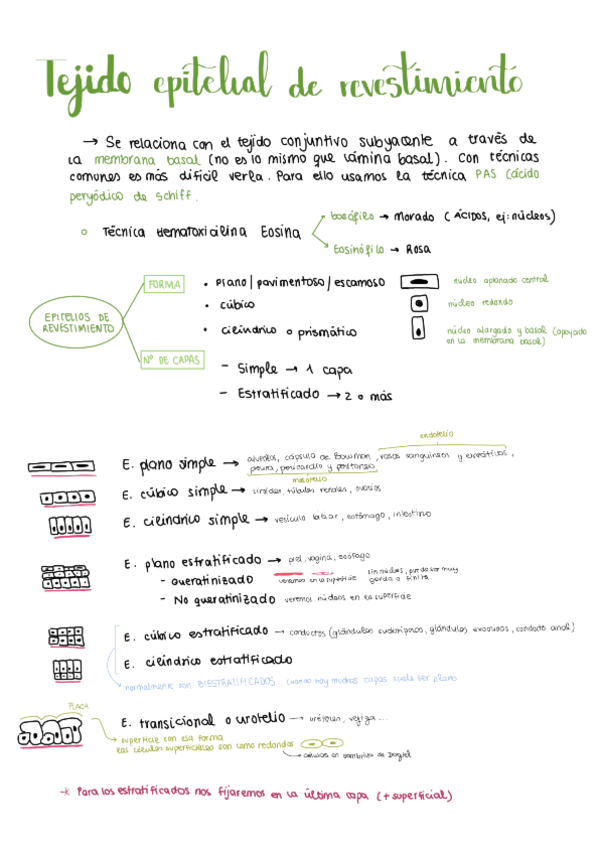 Tejido epitelial de revestimiento
→ Se relaciona con el tejido conjuntivo subyacente a través de
la membrana basal (no es lo mismo que lámina basal). Con técnicas
comunes es más difícil verla. Para ello usamos la técnica PAS (ácido
peryódico de Schiff.
Técnica Hematoxicilina Eosina
basófilo → Morado (ÁCIDOS, ej: núcleos)
Eosinófilo → Rosa
EPITELIOS DE
REVESTIMIENTO
FORMA
• Plano/pavimentoso/escamoso
núcleo aplanado central
• cúbico
núcleo redondo
• cilíndrico o prismático
núcleo alargado y basal (apoyado
en la membrana basal)
Nº DE CAPAS
- Simple → 1 capa
- Estratificado → 2 o más
endotelio
E. plano simple → alveolos, cápsula de Bowman, vasos sanguíneos y linfáticos,
pleura, pericardio y peritoneo
mesotelio
E. cúbico simple → tiroides, túbulos renales, ovarios
E. cilíndrico simple → vesícula biliar, estómago, intestino
E. plano estratificado → piel, vagina, esófago
- Queratinizado veremos en la superficie
sin núcleos, puede ser muy
gorda o finita.
- No queratinizado veremos núcleos en la superficie
E. cúbico estratificado → conductos (glándulas sudoríparas, glándulas exocrinas, conducto anal)
E. cilíndrico estratificado
normalmente son BIESTRATIFICADOS. Cuando hay muchas capas suele ser plano
PLACA
E. transicional o urotelio → uréteres, vejiga...
superficie con esa forma
las células superficiales son como redondas
→ células en paraguas de Dogiel
* Para los estratificados nos fijaremos en la última capa (+ superficial)